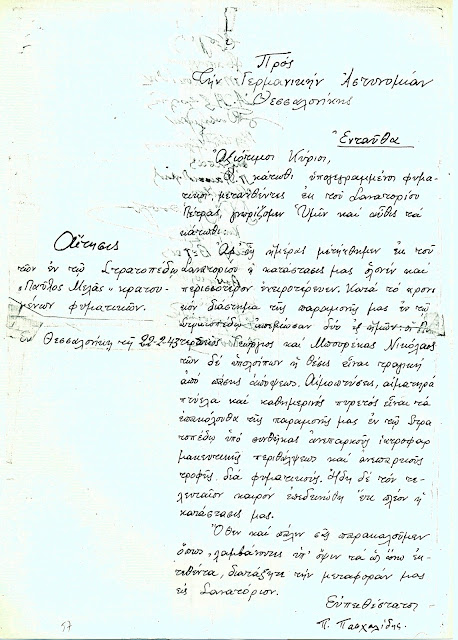 Πρὸς
Τὴν Γερμανικὴν Ἀστυνομίαν
Θεσσαλονίκης
Ἐνταῦθα
Ἀξιότιμοι Κύριοι,
Οἱ κάτωθι ὑπογεγραμμένοι φυμα-
τικοί, μεταχθέντες ἐκ τοῦ Σανατορίου
Πέτρας, γνωρίζομεν Ὑμῖν καὶ αὖθις τὰ
κάτωθι:
Αἴτησις
τῶν ἐν τῷ Στρατοπέδῳ
"Παῦλος Μελᾶς" κρατου-
μένων φυματικῶν.
Ἐν Θεσσαλονίκῃ τῇ 22-2-43
Ἀφ' ἧς ἡμέρας μετήχθημεν ἐκ τοῦ
Σανατορίου ἡ κατάστασίς μας ὁλονὲν καὶ
περισσότερον χειροτερεύει. Κατὰ τὸ χρονι-
κὸν διάστημα τῆς παραμονῆς μας ἐν τῷ
Στρατοπέδῳ ἀπεβίωσαν δύο ἐξ ἡμῶν: ὁ
Γεώργιος καὶ Μπουρέκας Νικόλαος
τῶν δὲ ὑπολοίπων ἡ θέσις εἶναι τραγικὴ
ἀπὸ πάσης ἀπόψεως. Αἱμοπτύσεις, αἱματηρὰ
πτύελα καὶ καθημερινὸς πυρετὸς εἶναι τὰ
ἐπακόλουθα τῆς παραμονῆς μας ἐν τῷ Στρα
τοπέδῳ ὑπὸ συνθήκας ἀνεπαρκοῦς ἰατροφαρ
μακευτικῆς περιθάλψεως καὶ ἀνεπαρκοῦς
τροφῆς διὰ φυματικούς. Ἤδη δὲ τὸν τε-
λευταῖον καιρὸν ἐπεδεινώθη ἔτι πλέον ἡ
κατάστασίς μας.
Ὅθεν καὶ πάλιν σᾶς παρακαλοῦμεν
ὅπως, λαμβάνοντες ὑπ' ὄψιν τὰ ὡς ἄνω ἐκ-
τεθέντα, διατάξητε τὴν μεταφοράν μας
εἰς Σανατόριον.
Εὐπειθέστατοι
Π. Πασχαλίδης.
57